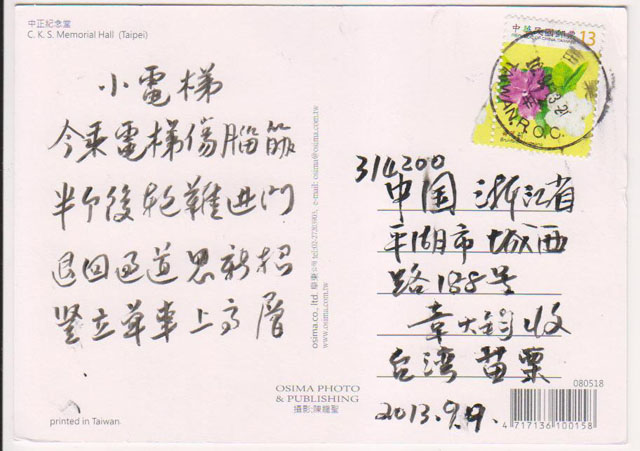 中正紀念堂
C. K. S. Memorial Hall (Taipei)
小電梯
今乘電梯傷腦筋
半个後轮難进门
退回通道思新招
竖立單車上高層
printed in Taiwan
osima.co., ltd
e-mail: osima@osima.com.tw
www.osima.com.tw
OSIMA PHOTO
& PUBLISHING
攝影:陳龍聖
中華民國郵票 13
TAIWAN R.O.C.
314200
中国 浙江省
平湖市 城西
路188号
章大鈞收
台湾 苗栗
2013.9.9.
080518
4 717136 100158